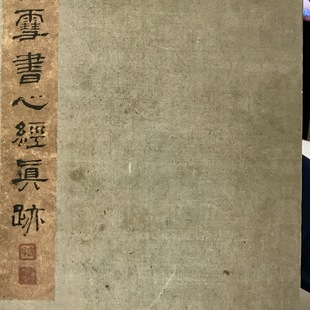 雪書心經眞跡